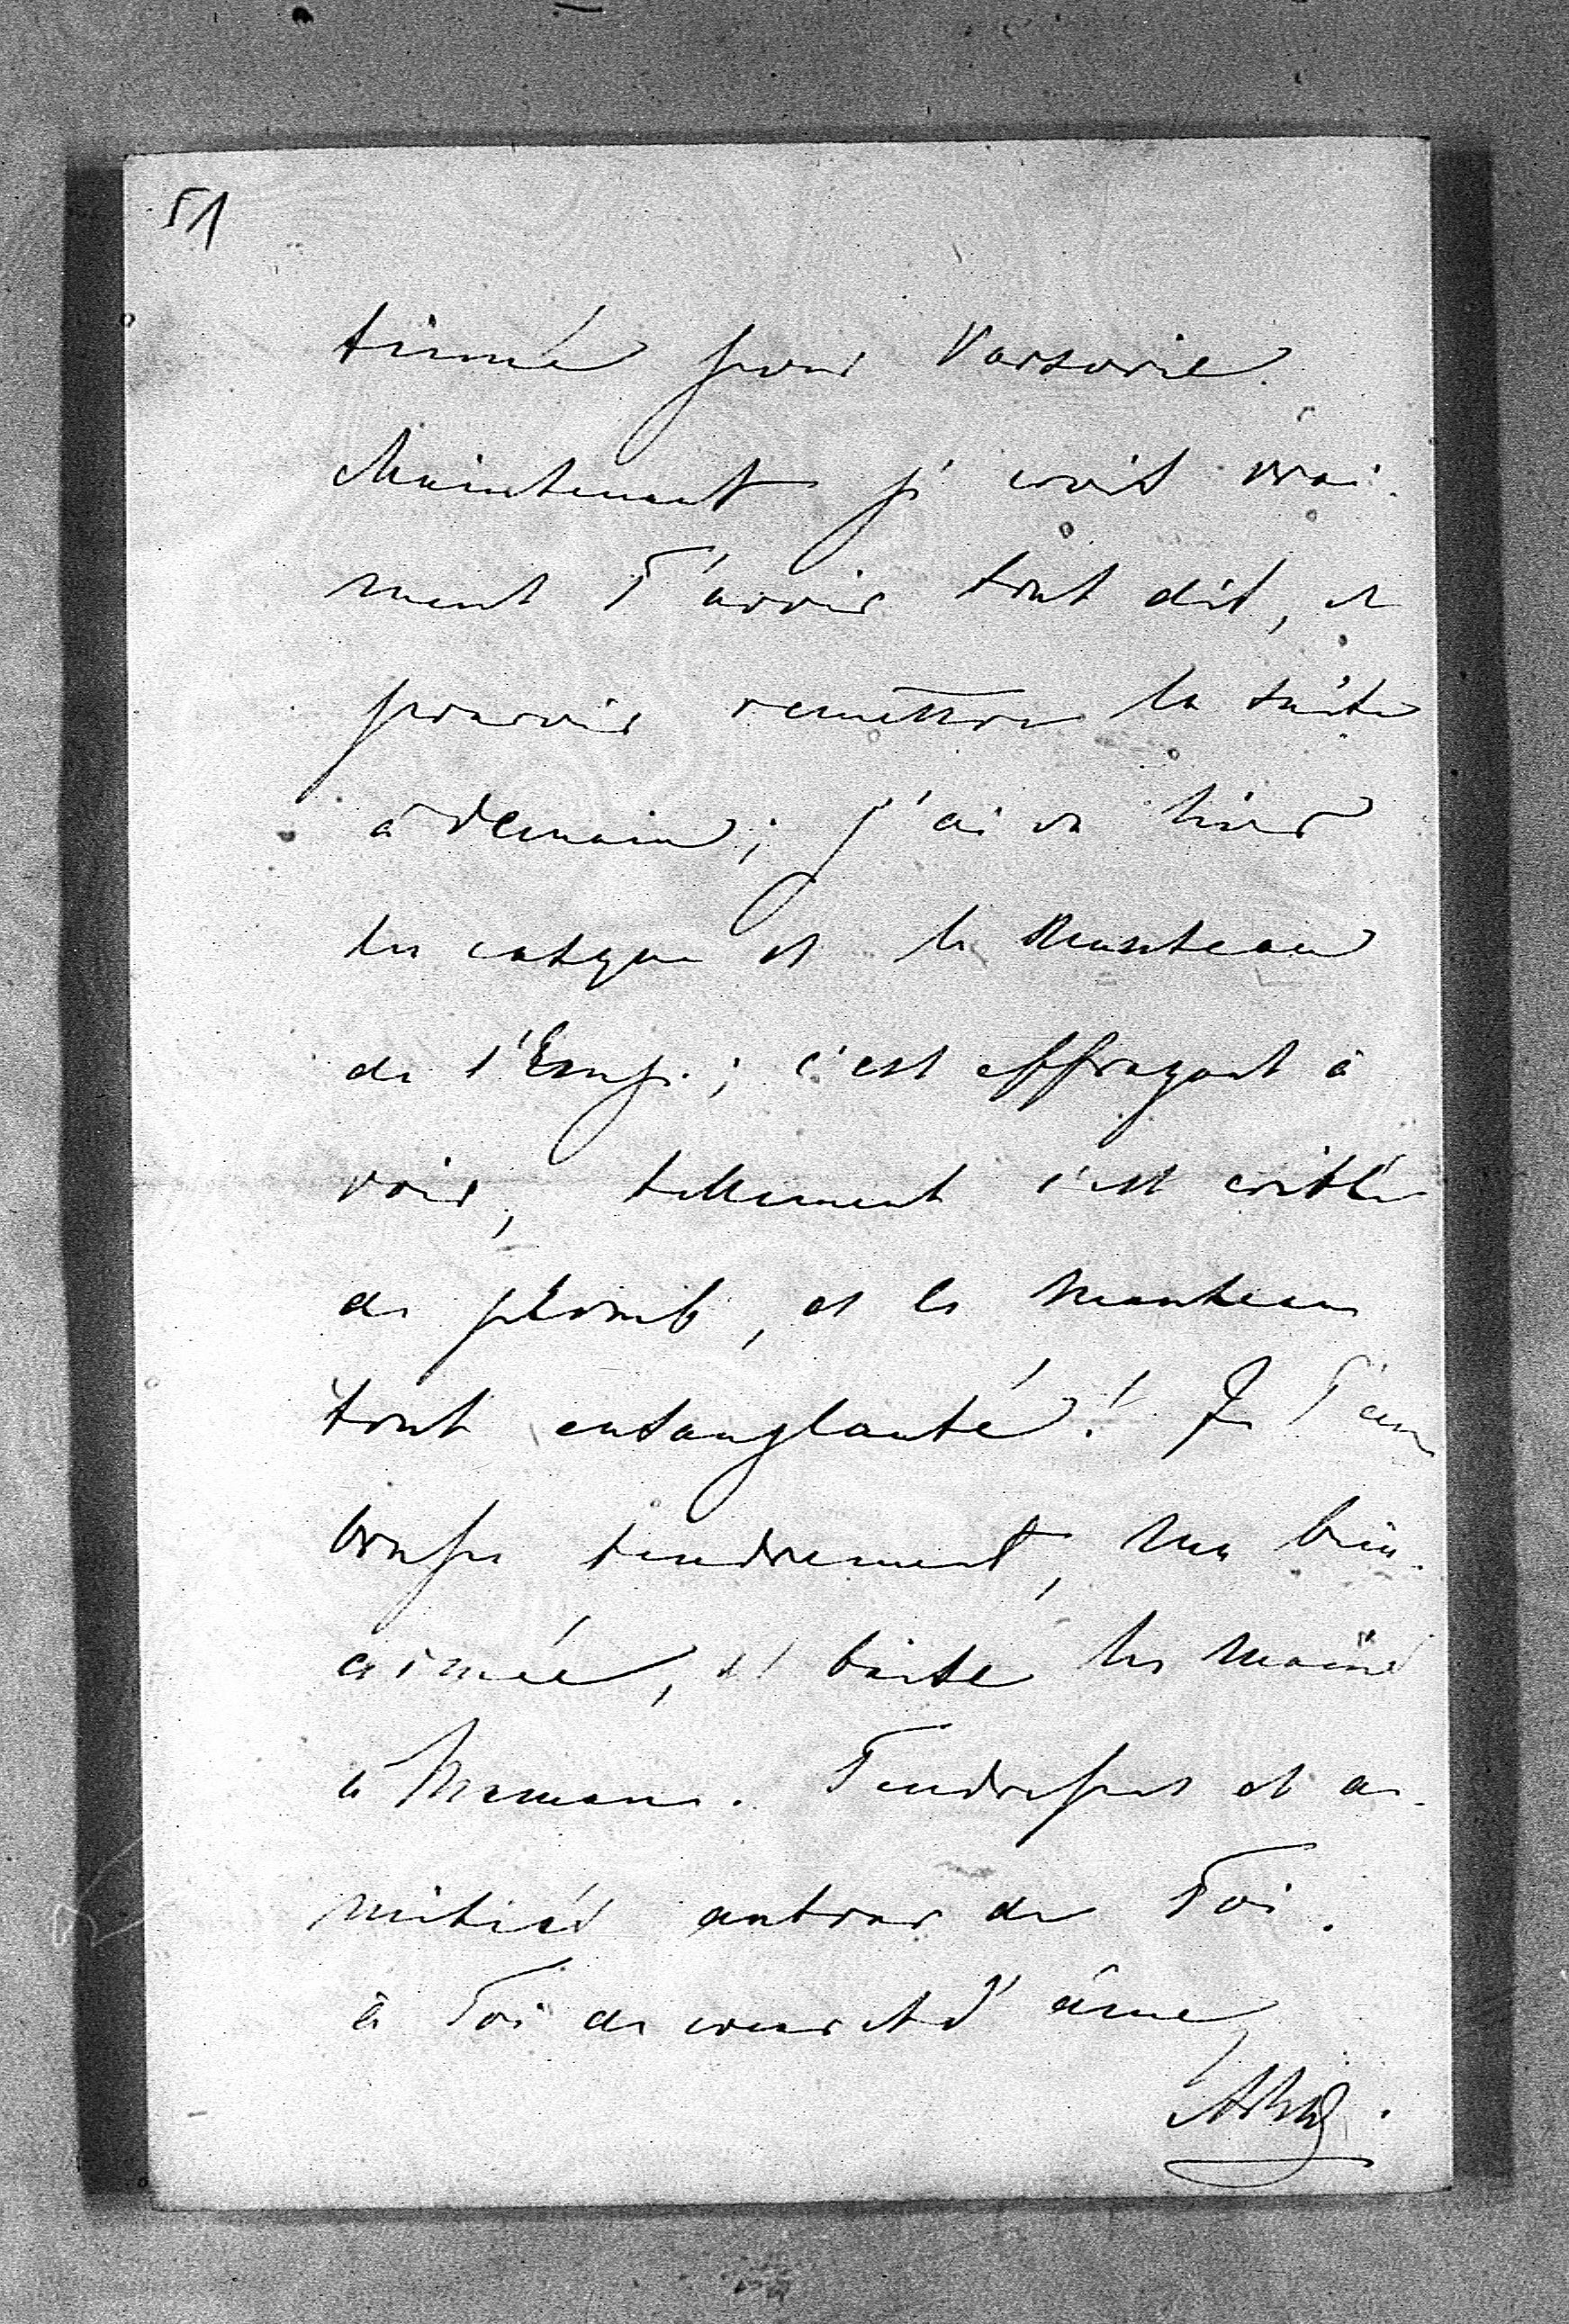 51
tinué pour Varsovie.
Maintenant je crois vrai-
ment T'avoir tout dit, et
pouvoir remettre la suite
à demain; j'ai vu hier
les casque et le manteau
de l'Emp.; c'est effrayant à
voir, tellement c'est criblé
de plomb, et le manteau
tout ensanglanté! Je T'em
brasse tendrement, ma bien-
aimée, et baise les mains
à Maman. Tendresses et a-
mitiés autour de Toi.
à Toi de cœur et d'âme